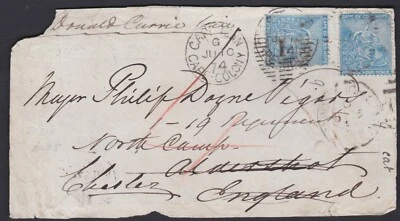 Donald Currie
CAPE TOWN
G
JU 10
74
CAPE COLONY
1
Major Philip Doyne Vigors
19 Regiment
North Camp
Aldershot
Chester England